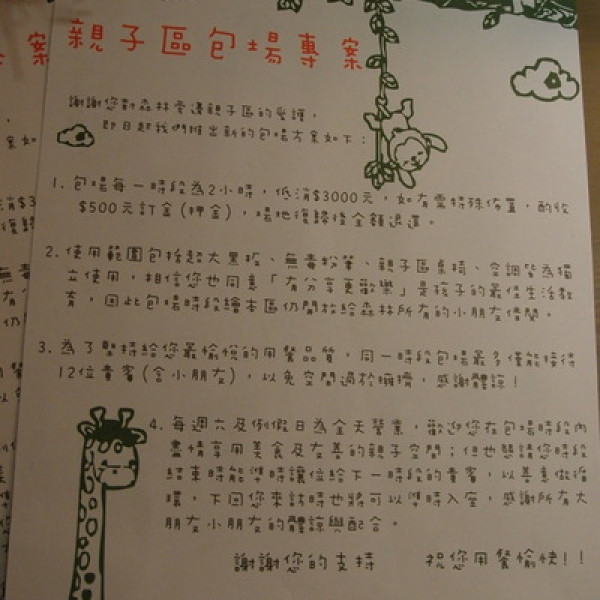 親子區包場專案
謝謝您對森林旁邊親子區的愛護，
即日起我們推出新的包場方案如下：
1. 包場每一時段為2小時，低消$3000元，如有需特殊佈置，酌收
$500元訂金(押金)，場地復歸後全額退還。
2. 使用範圍包括超大黑板、無毒粉筆、親子區桌椅、空調皆為獨
立使用，相信您也同意「有分享更歡樂」是孩子的最佳生活教
育，因此包場時段繪本區仍開放給森林所有的小朋友借閱。
3. 為了堅持給您最愉悅的用餐品質，同一時段包場最多僅能接待
12位貴賓(含小朋友)，以免空間過於擁擠，感謝體諒！
4. 每週六及例假日為全天營業，歡迎您在包場時段內
盡情享用美食及友善的親子空間；但也懇請您時段
結束時能準時讓位給下一時段的貴賓，以善意做循
環，下回您來訪時也將可以準時入座，感謝所有大
朋友小朋友的體諒與配合。
謝謝您的支持 祝您用餐愉快！！